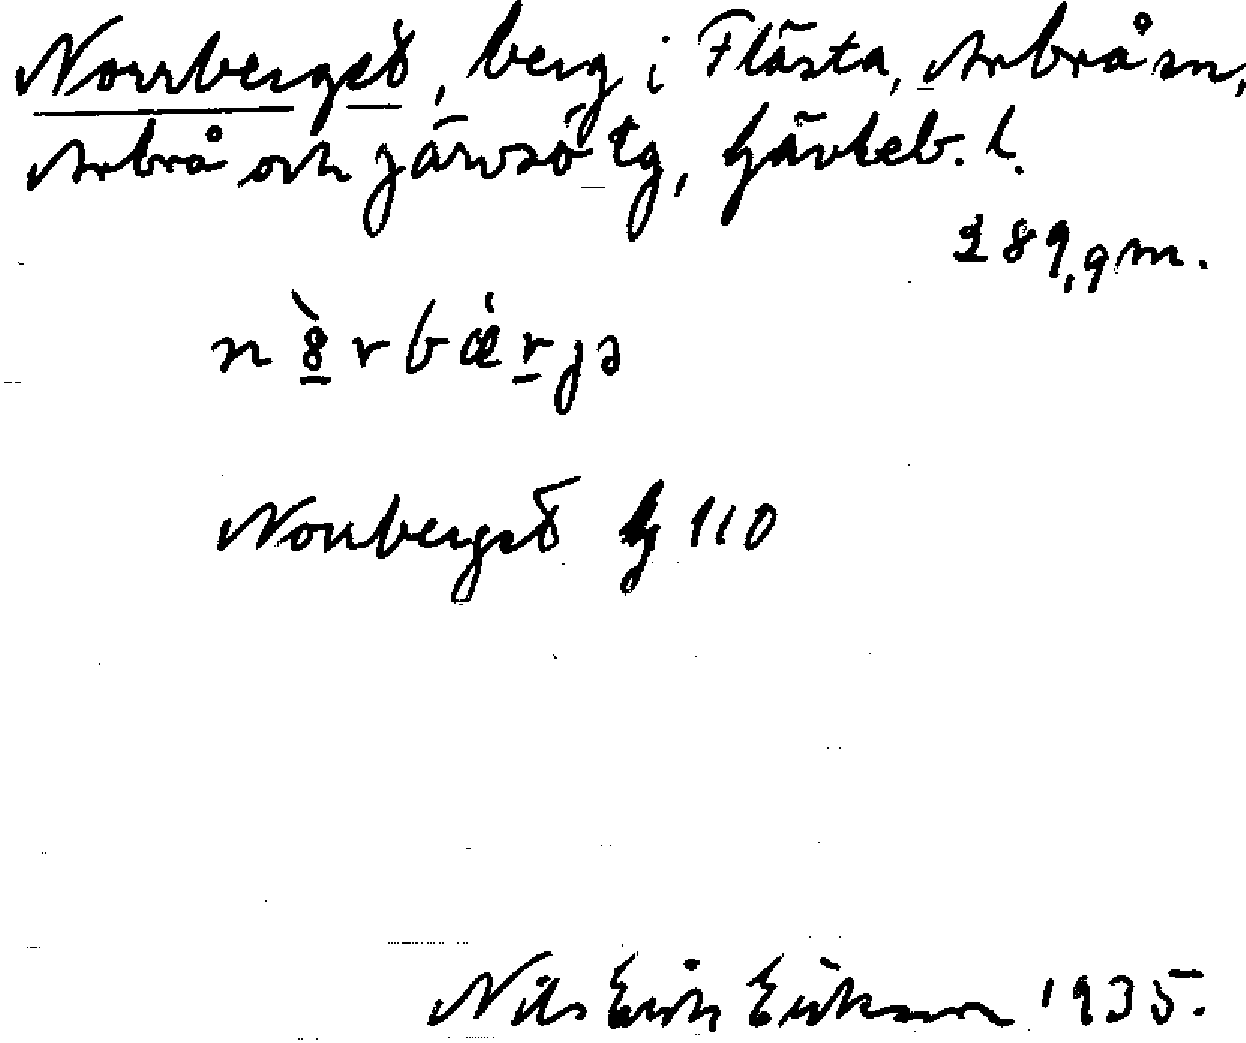 Norrberget, berg i Flästa, Arbrå sn,
Arbrå och Järvsö tg, Gävleb. l.
289,9 m.
n ò̱ r b æ̍ r̲ j ə
Norrberget G 110
Nils Erik Eriksson 1935.